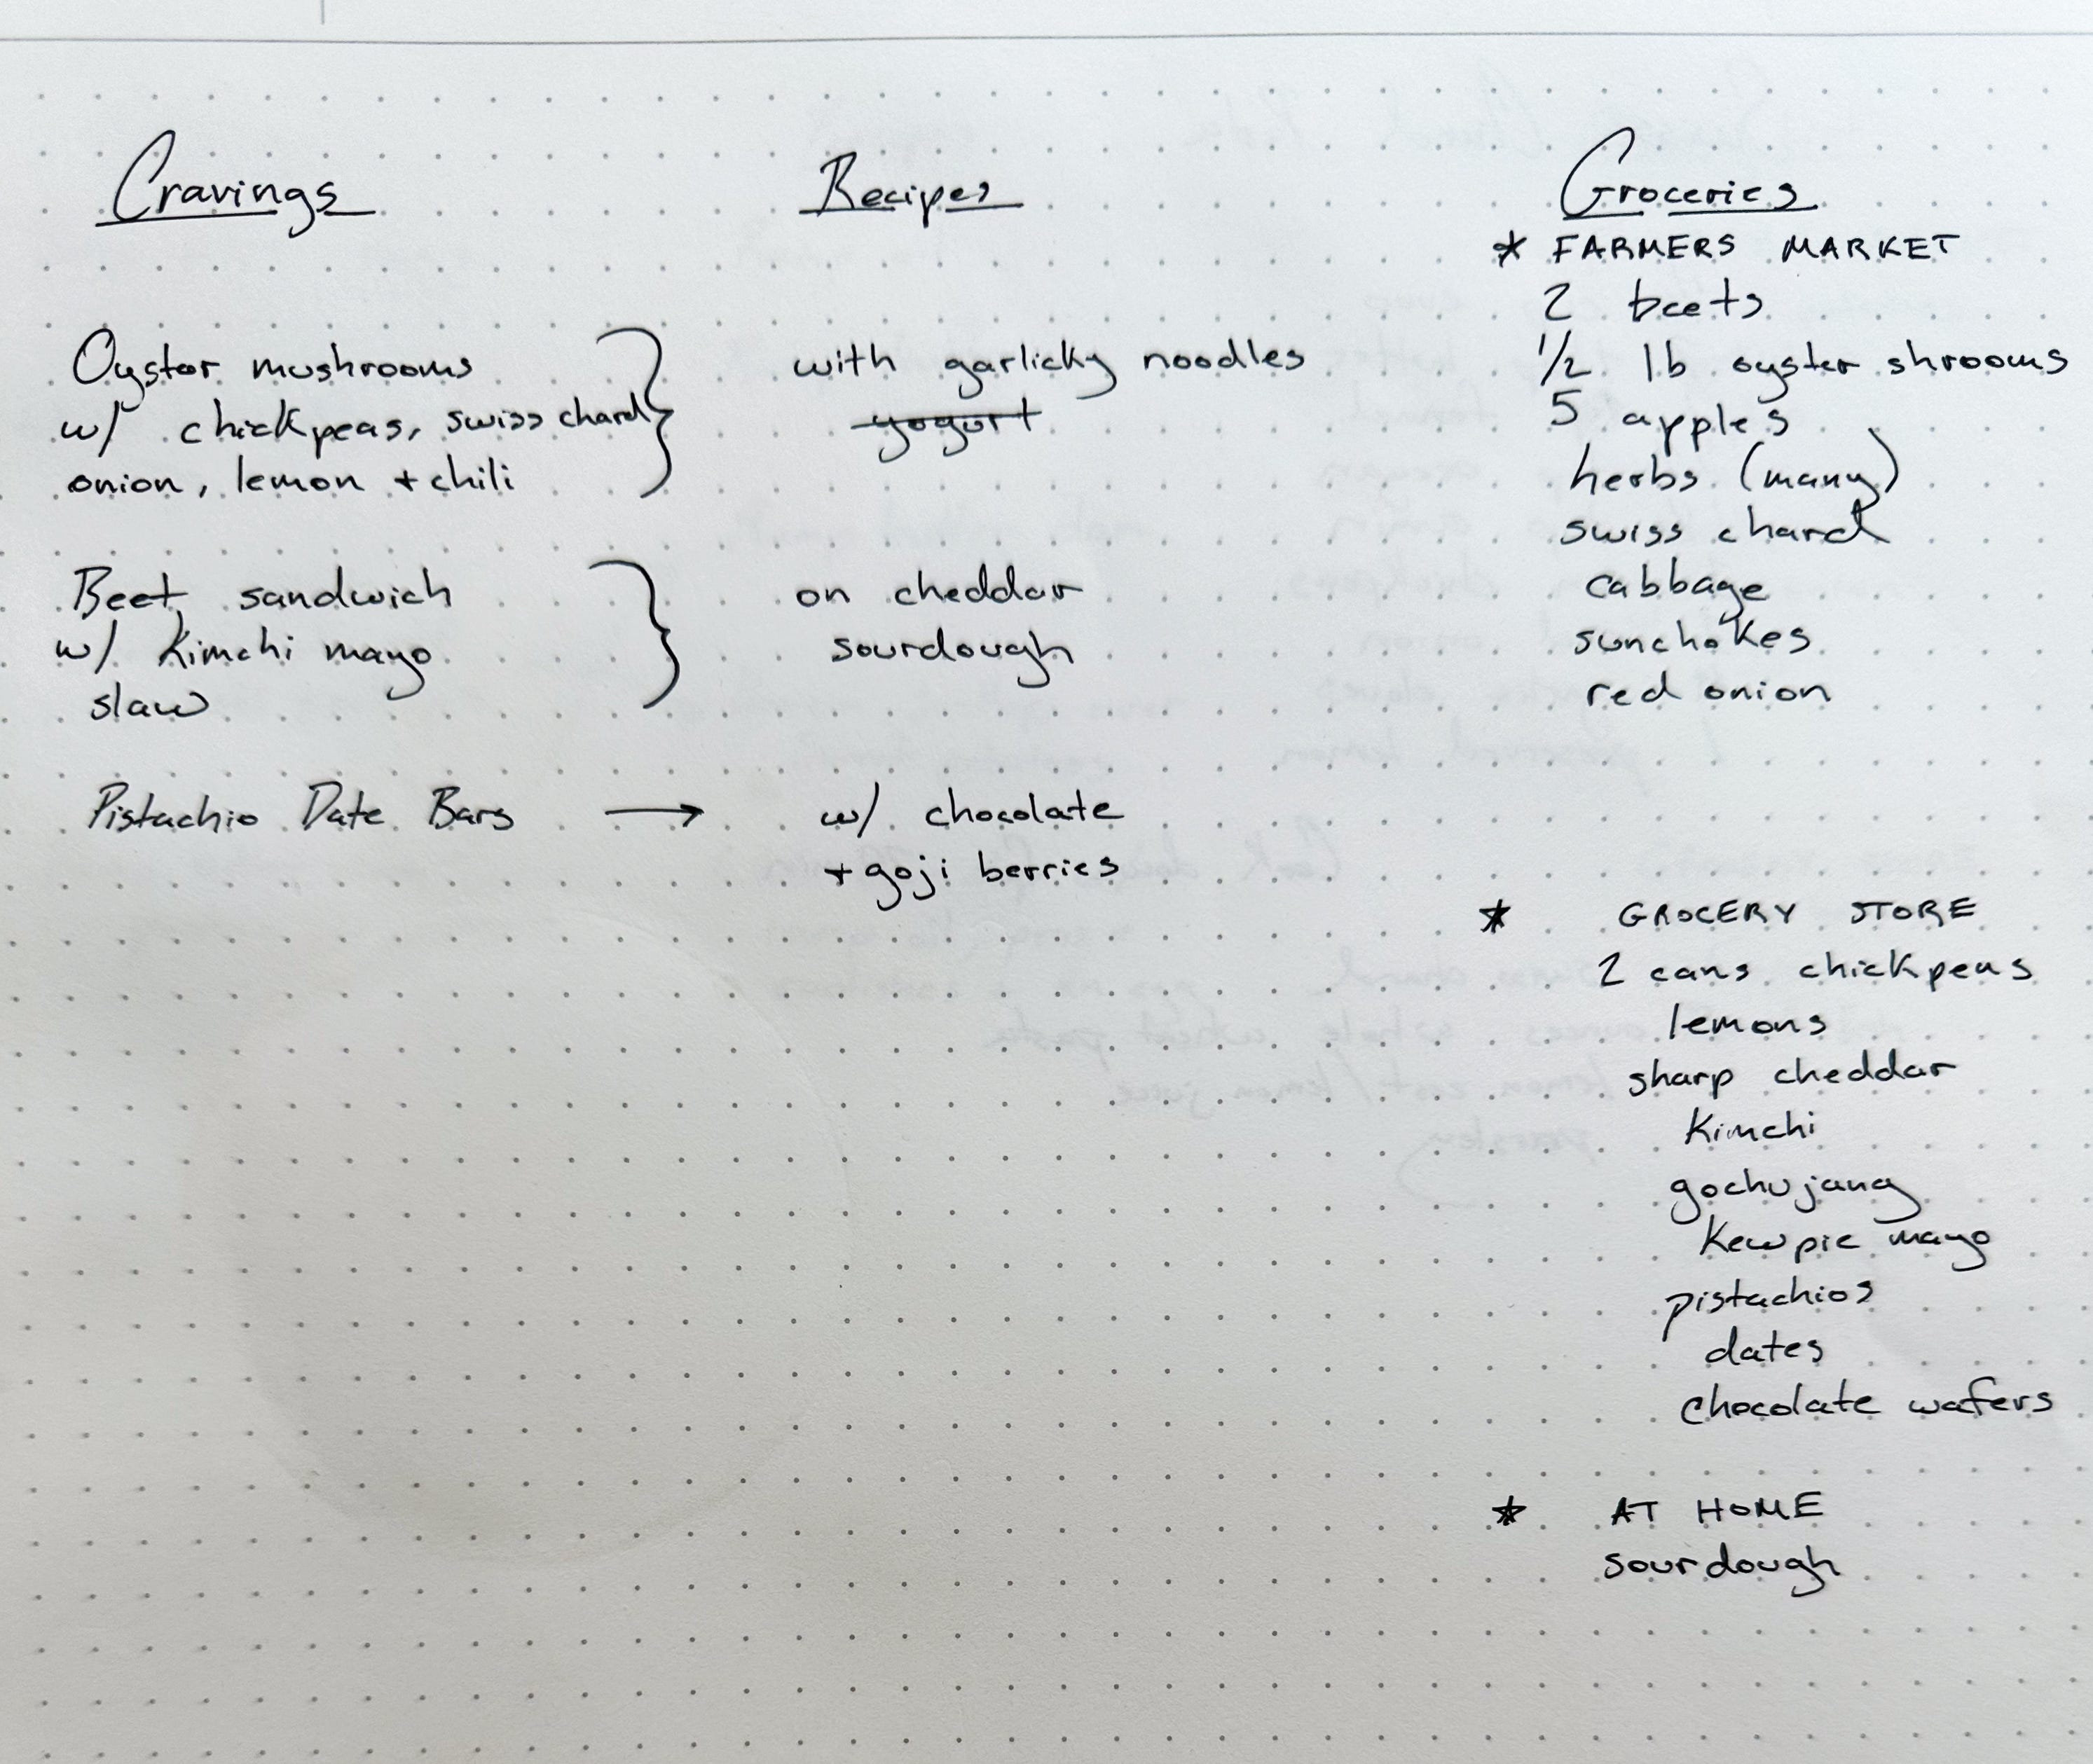 Cravings
Oyster mushrooms
w/ chickpeas, swiss chard
onion, lemon + chili
Beet sandwich
w/ Kimchi mayo
slaw
Pistachio Date Bars →
Recipes
with garlicky noodles
yogurt
on cheddar
sourdough
w/ chocolate
+ goji berries
Groceries
* FARMERS MARKET
2 beets
1/2 lb oyster shrooms
5 apples
herbs (many)
swiss chard
cabbage
sunchokes
red onion
* GROCERY STORE
2 cans chickpeas
lemons
sharp cheddar
Kimchi
gochujang
Kewpie mayo
pistachios
dates
chocolate wafers
* AT HOME
sourdough